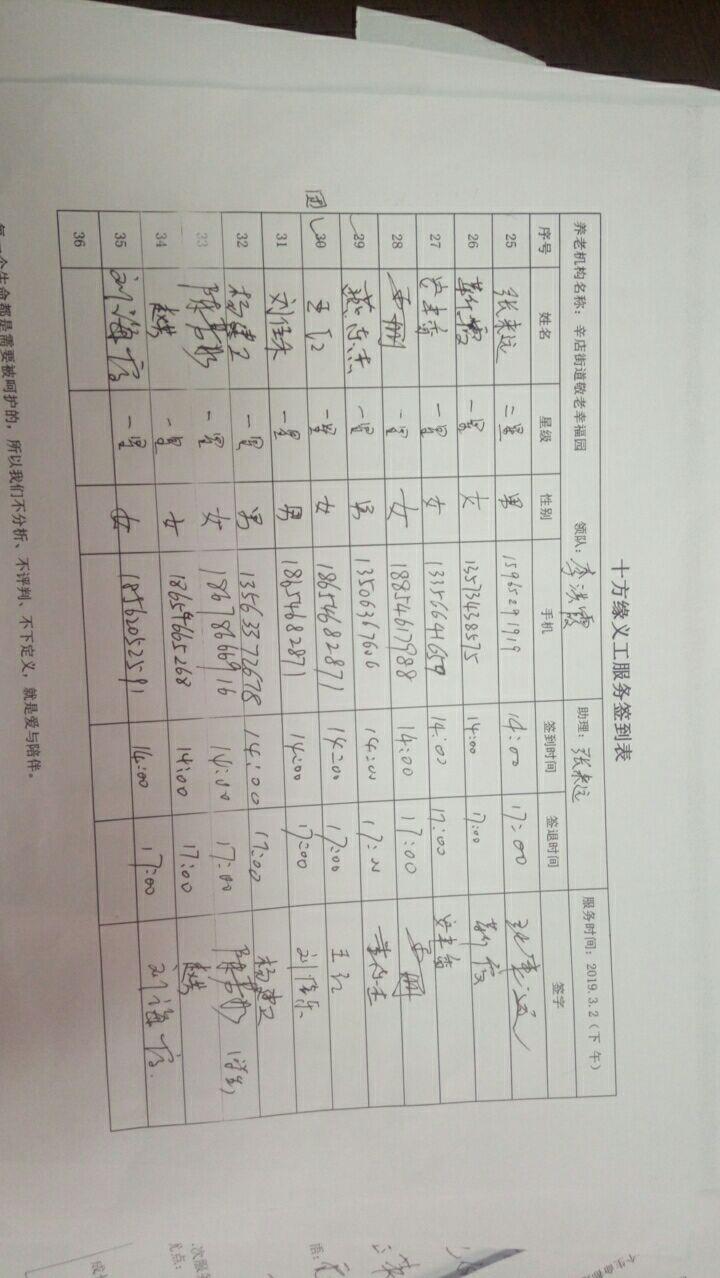 十方缘义工服务签到表
养老机构名称：辛店街道敬老幸福园 领队：李洪霞 助理：张来远 服务时间：2019.3.2（下午）
序号 姓名 星级 性别 手机 签到时间 签退时间 签字
25 张来远 二星 男 15965291919 14:00 17:00 张来远
26 靳霞 一星 女 13573438575 14:00 17:00 靳霞
27 一星 女 13356641659 14:00 17:00
28 一星 女 18854617988 14:00 17:00
29 一星 男 13506367606 14:00 17:00
30 王红 一星 女 18654682871 14:00 17:00 王红
31 一星 男 18654682871 14:00 17:00
32 杨建卫 一星 男 13563372678 14:00 17:00 杨建卫
33 一星 女 18678666916 14:00 17:00
34 一星 女 18654665268 14:00 17:00
35 刘海 一星 女 18562052591 14:00 17:00 刘海
36
团
每一个生命都是需要被呵护的，所以我们不分析、不评判、不下定义，就是爱与陪伴。